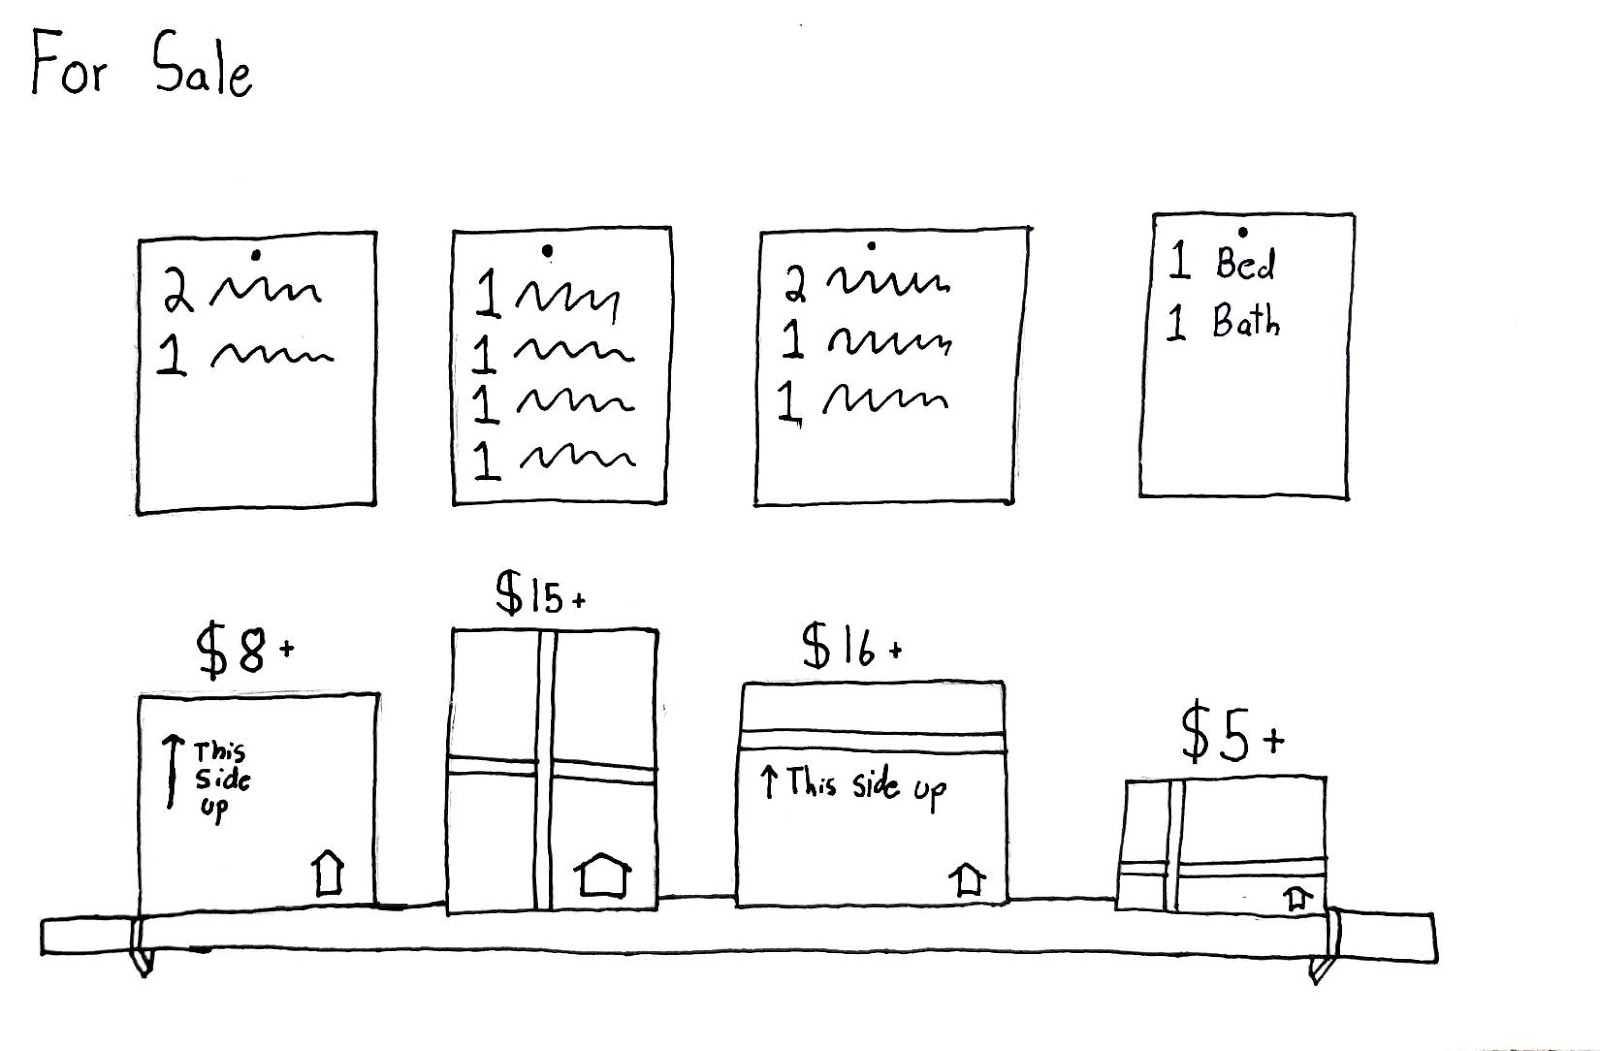 For Sale
2
1
1
1
1
1
2
1
1
1 Bed
1 Bath
$8+
$15+
$16+
$5+
↑ This
Side
up
↑ This side up